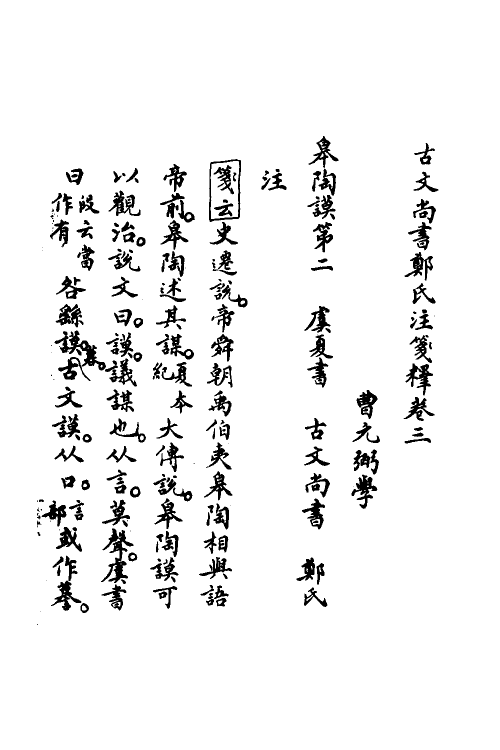 古文尚書鄭氏注箋釋卷三
曹元弼學
皋陶謨第二　虞夏書　古文尚書　鄭氏
注
箋云史遷說。帝舜朝禹伯夷皋陶相與語
帝前。皋陶述其謀。夏本紀大傳說。皋陶謨可
以觀治。說文曰。謨。議謀也。从言。莫聲。虞書
曰段云當作有咎繇謨。古文謨。从口。言部或作𦹋。